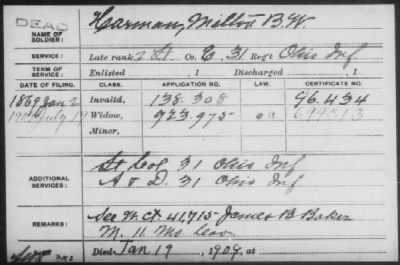 DEAD
NAME OF SOLDIER: Harman, Milton B. W.
SERVICE: Late rank, 2 Lt. Co. E. 31 Reg't Ohio Inf.
TERM OF SERVICE: Enlisted , 1 Discharged , 1
DATE OF FILING. CLASS. APPLICATION NO. LAW. CERTIFICATE NO.
1869 Jan 2 Invalid, 138.308 96.434
July Widow, 923.975
Minor,
ADDITIONAL SERVICES: Lt Col 31 Ohio Inf
A & D. 31 Ohio Inf
REMARKS: See W. Ct 41,715 - James B Baker
M. 11 Mo. Cav.
Died Jan 19, 1909, at